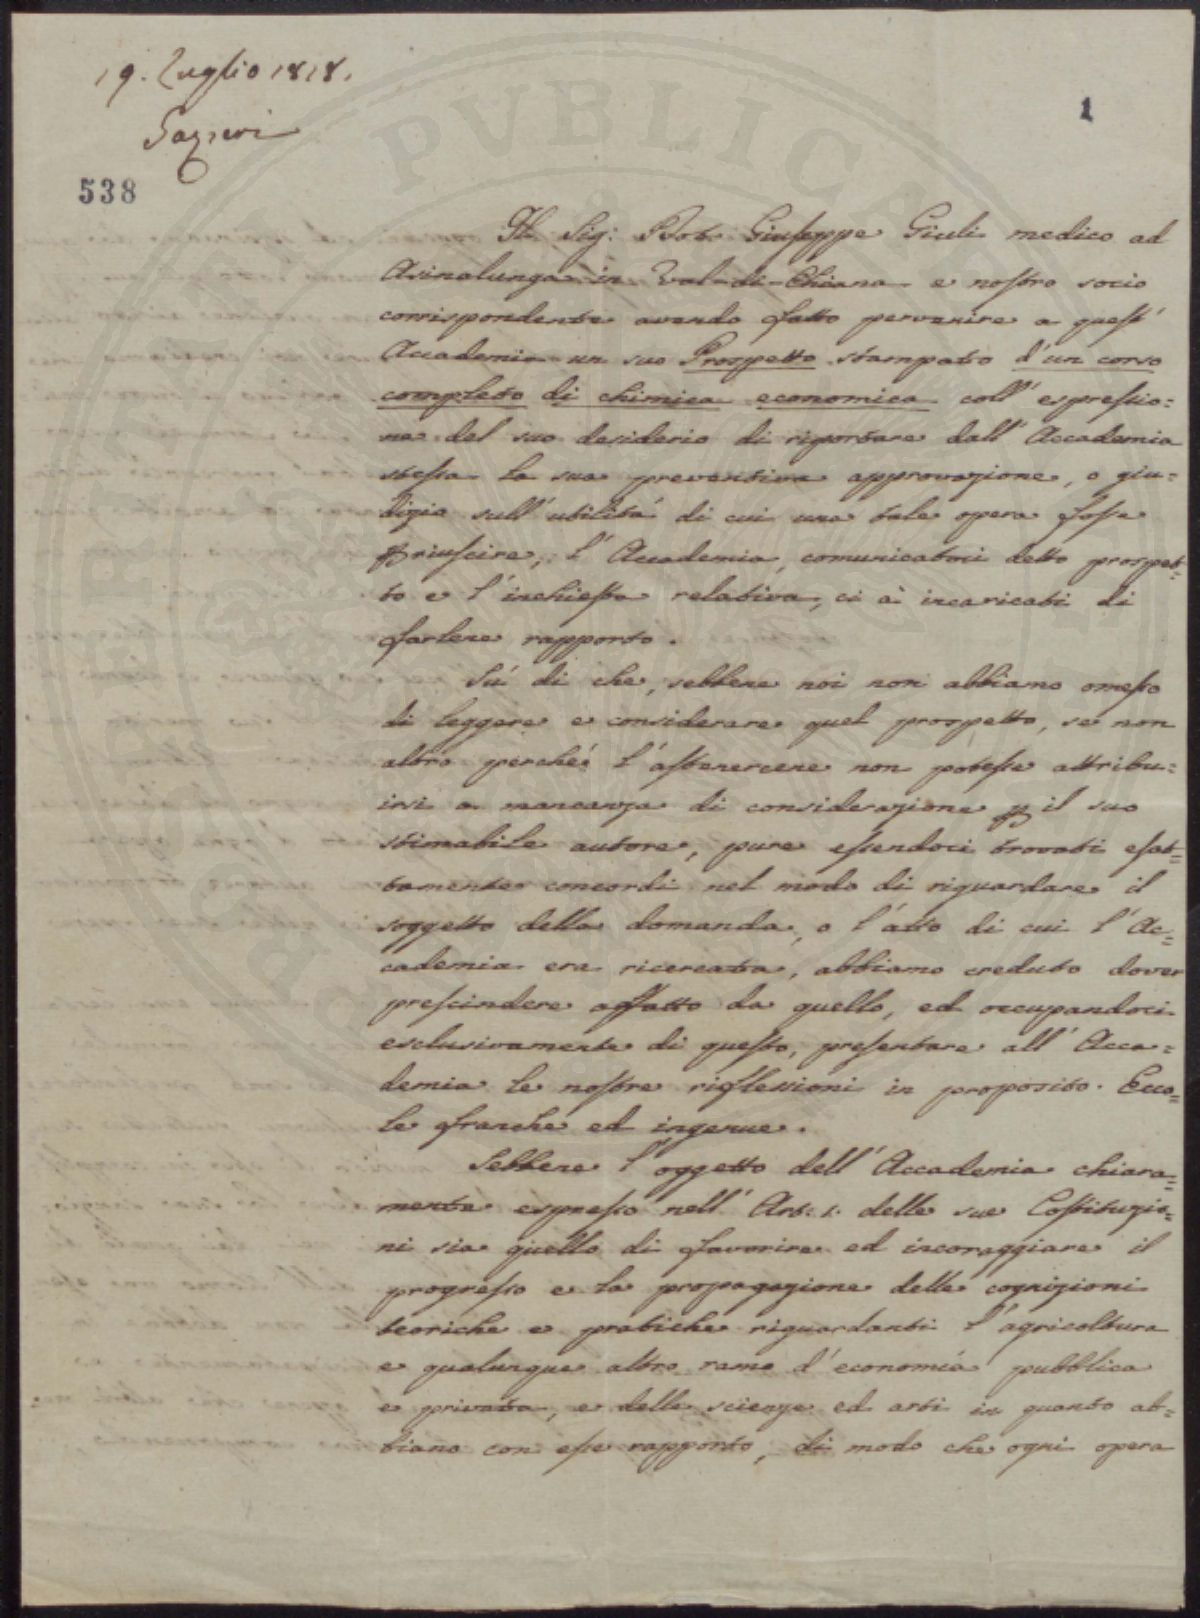 19. Luglio 1818.
Gazzeri
1
538
Il Sig: Dott. Giuseppe Giuli medico ad
Asinalunga in Val-di-Chiana e nostro socio
corrispondente avendo fatto pervenire a quest'
Accademia un suo Prospetto stampato d'un corso
completo di chimica economica coll'espressio=
ne del suo desiderio di riportare dall'Accademia
stessa la sua preventiva approvazione, o giu=
dizio sull'utilità di cui una tale opera fosse
riuscire, l'Accademia, comunicatoci detto prospet=
to e l'inchiesta relativa, ci à incaricati di
farlene rapporto.
Sù di che, sebbene noi non abbiamo omesso
di leggere e considerare quel prospetto, se non
altro perché l'astenercene non potesse attribu=
irsi a mancanza di considerazione p il suo
stimabile autore, pure essendoci trovati esat=
tamente concordi nel modo di riguardare il
soggetto della domanda, o l'atto di cui l'Ac=
cademia era ricercata, abbiamo creduto dover
prescindere affatto da quello, ed occupandoci
esclusivamente di questo, presentare all'Acca=
demia le nostre riflessioni in proposito. Ecco=
le franche ed ingenue.
Sebbene l'oggetto dell'Accademia chiara=
mente espresso nell'Art. 1. delle sue Costituzio=
ni sia quello di favorire ed incoraggiare il
progresso e la propagazione delle cognizioni
teoriche e pratiche riguardanti l'agricoltura
e qualunque altro ramo d'economía pubblica
e privata, e delle scienze ed arti in quanto ab=
biano con esse rapporto, di modo che ogni opera